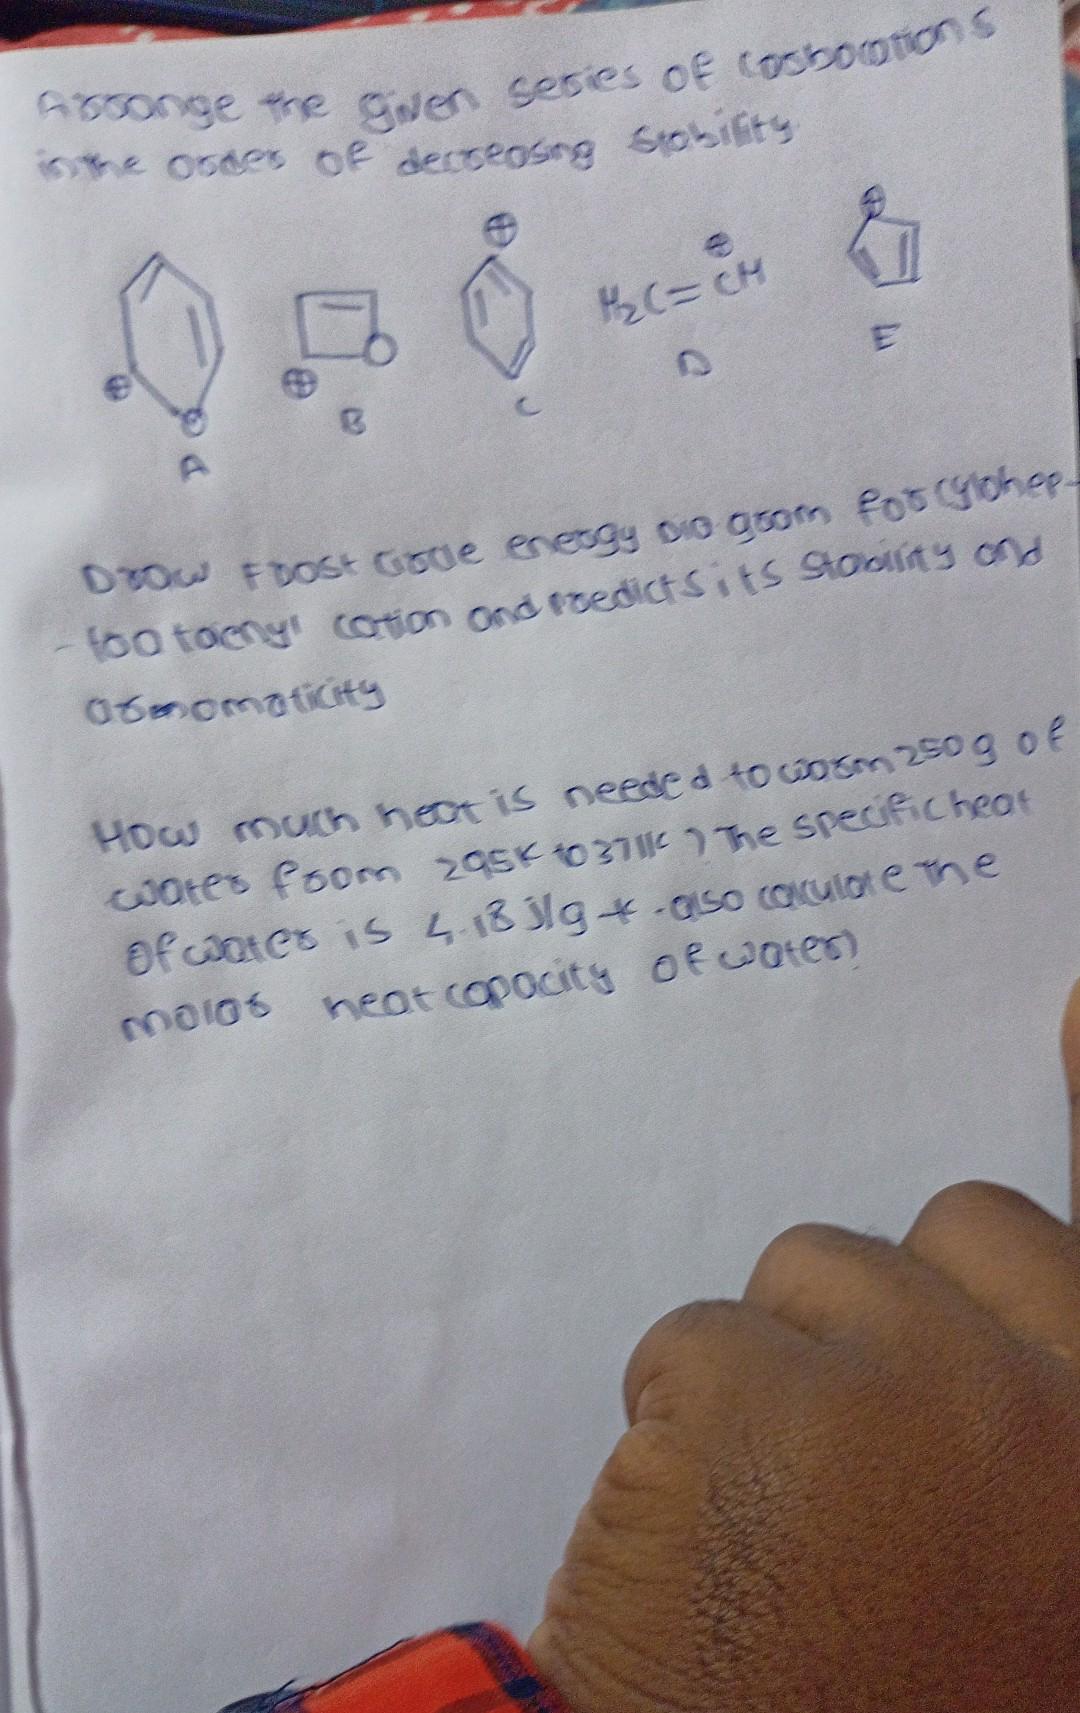 Arrange the given series of carbocations
in the order of decreasing stability
⊕ ⊕
⊕
H₂C=CH
⊕ O
⊕ O
A B C D E
Draw Frost Circle energy Dia gram for cylohep-
- tao taieny' cation and predicts its Stability and
aromomaticity
How much heat is needed to warm 250g of
water from 295K to 371K ) The specific heat
of water is 4.18 J/g - also calculate the
molar heat capacity of water)